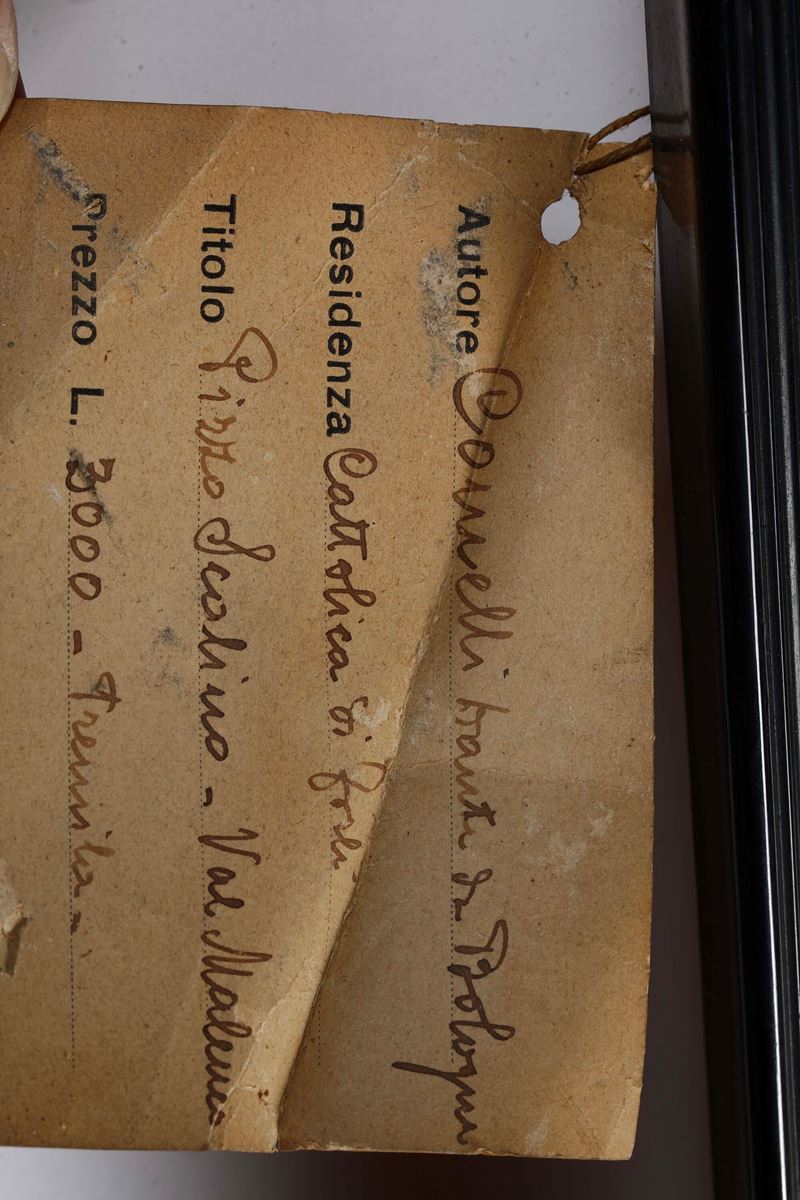 Autore Comelli Dante da Bologna
Residenza Cattolica di Forlì
Titolo Pizzo Scalino - Val Malenco
Prezzo L. 3000 - Tremila -